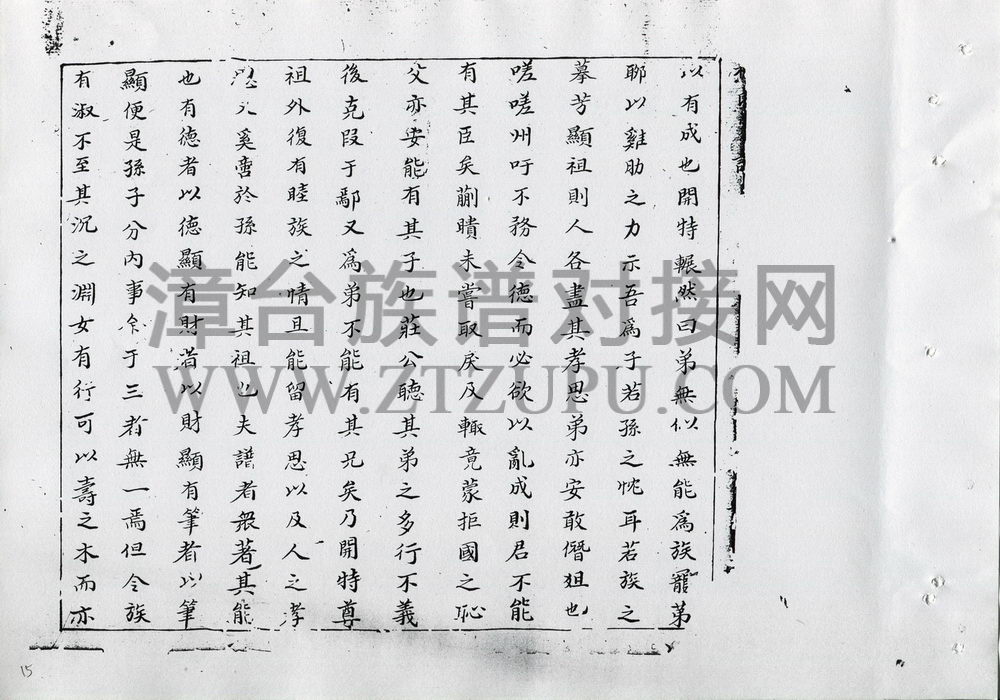 以有成也開特輾然曰弟無似無能為族寵第
聊以雞肋之力示吾為子若孫之忱耳若族之
摹芳顯祖則人各盡其孝思弟亦安敢僭俎也
嗟嗟州吁不務令德而必欲以亂成則君不能
有其臣矣蒯聵未嘗取戾及輒竟蒙拒國之恥
父亦安能有其子也莊公聽其弟之多行不義
後克段于鄢又為弟不能有其兄矣乃開特尊
祖外復有睦族之情且能留孝思以及人之孝
思是奚啻於孫能知其祖也夫譜者衆著其能
也有德者以德顯有財者以財顯有筆者以筆
顯便是孫子分內事余于三者無一焉但令族
有淑不至其沉之淵女有行可以壽之木而亦
漳台族谱对接网
WWW.ZTZUPU.COM
15